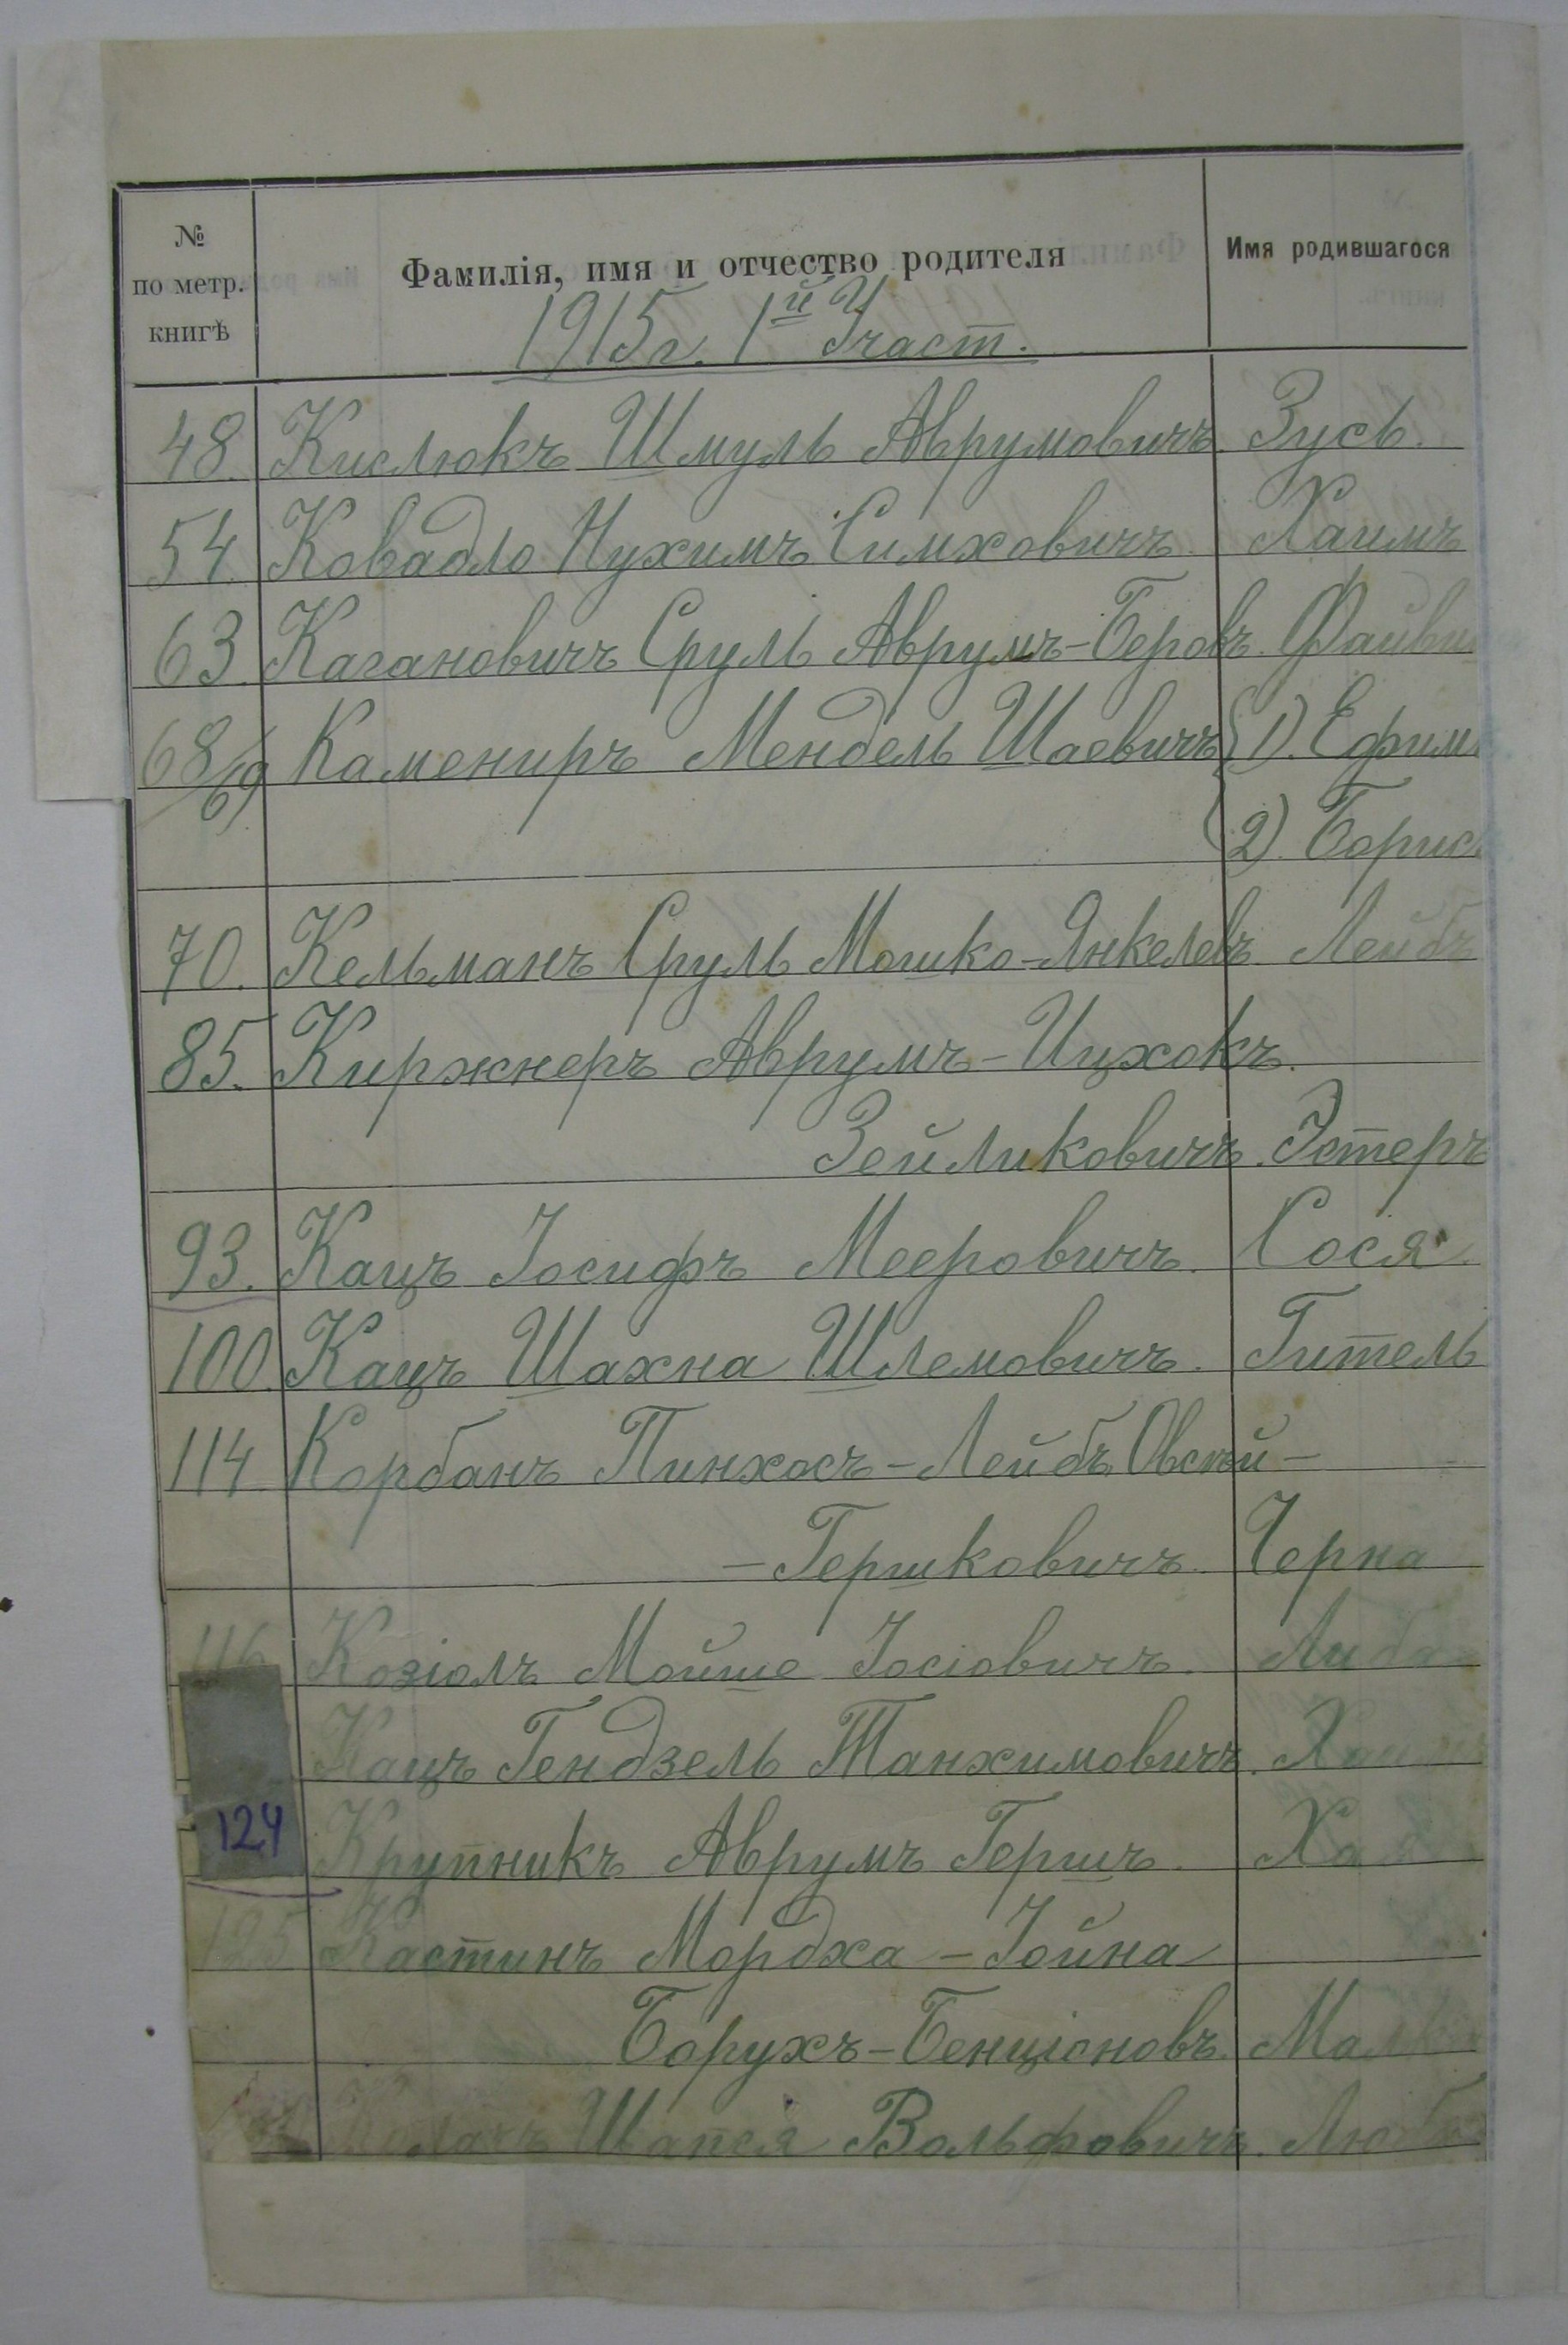 № по метр. книгѣ Фамилія, имя и отчество родителя Имя родившагося
1915г. 1й Участ.
48. Кислюкъ Шмуль Аврумовичъ. Зусь.
54. Ковадло Нухимъ Симховичъ Хаимъ
63. Кагановичъ Сруль Аврумъ-Беровъ. Файви
68/69 Камениръ Мендель Шаевичъ 1). Ефим
2). Борис
70. Кельманъ Сруль Мошко-Янкелевъ Лейбъ
85. Киржнеръ Аврумъ-Ицхокъ.
Зейликовичъ. Эстеръ
93. Кацъ Іосифъ Мееровичъ. Сося
100. Кацъ Шахна Шлемовичъ. Гитель
114 Корбанъ Пинхосъ-Лейбъ Овсѣй-
-Гершковичъ. Черна
116 Козіолъ Мойше Іосіовичъ. Либа
Кацъ Гендзель Танхимовичъ.
124 Крупникъ Аврумъ Гершъ.
125 Костинъ Мордха-Іойна
Борухъ-Бенціоновъ. Малка
Шапся Вольфовичъ. Люба